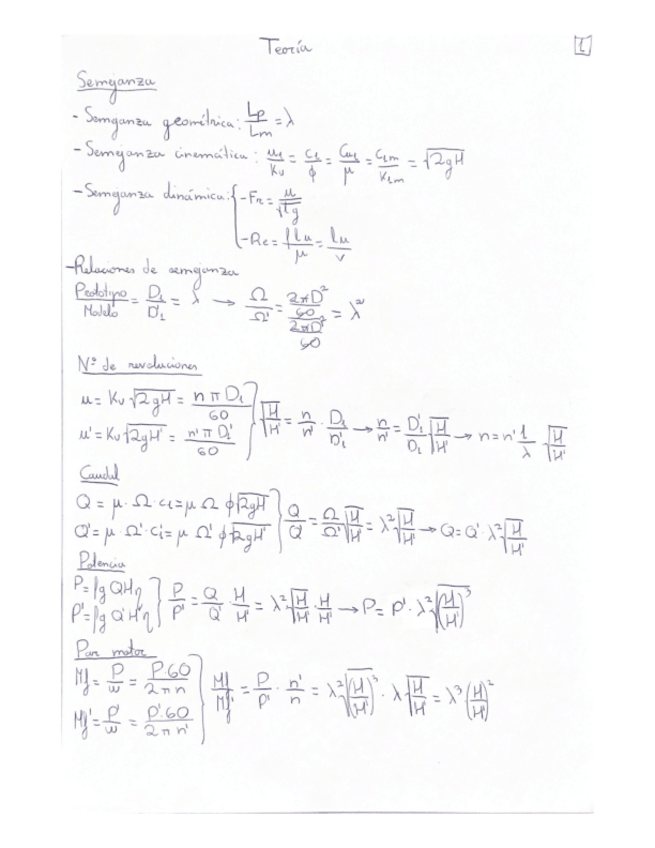 Teoría 1
Semejanza
- Semejanza geométrica: Lp/Lm = λ
- Semejanza cinemática: u₁/Ku = c₁/φ = Cu₁/μ = c₁m/K₁m = √2gH
- Semejanza dinámica: { - Fr = u/√lg
- Re = ρlu/μ = lu/ν
- Relaciones de semejanza
Prototipo/Modelo = D₁/D'₁ = λ → Ω/Ω' = (2πD²/60)/(2πD²/60) = λ²
Nº de revoluciones
u = Ku √2gH = nπD₁/60
u' = Ku √2gH' = n'πD₁'/60 } √H/H' = n/n' · D₁/D'₁ → n/n' = D'₁/D₁ √H/H' → n = n' 1/λ · √H/H'
Caudal
Q = μ · Ω · c₁ = μ Ω φ √2gH
Q' = μ · Ω' · c₁' = μ Ω' φ √2gH' } Q/Q' = Ω/Ω' √H/H' = λ² √H/H' → Q = Q' · λ² √H/H'
Potencia
P = ρg QHη
P' = ρg Q'H'η } P/P' = Q/Q' · H/H' = λ² √H/H' · H/H' → P = P' · λ² √(H/H')³
Par motor
Mf = P/w = P·60/2πn
Mf' = P'/w = P'·60/2πn' } Mf/Mf' = P/P' · n'/n = λ² √(H/H')³ · λ √H/H' = λ³ (H/H')²